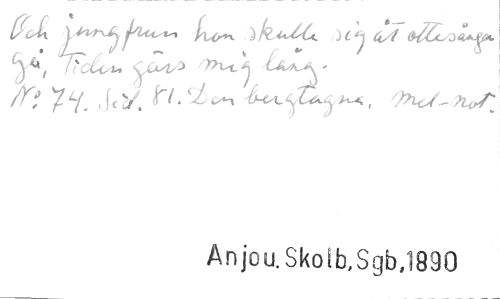 Och jungfrun hon skulle sig åt ottesången
gå, Tiden görs mig lång.
No: 74. Sid. 81. Den bergtagna. Mel-not.
Anjou. Skolb, Sgb, 1890